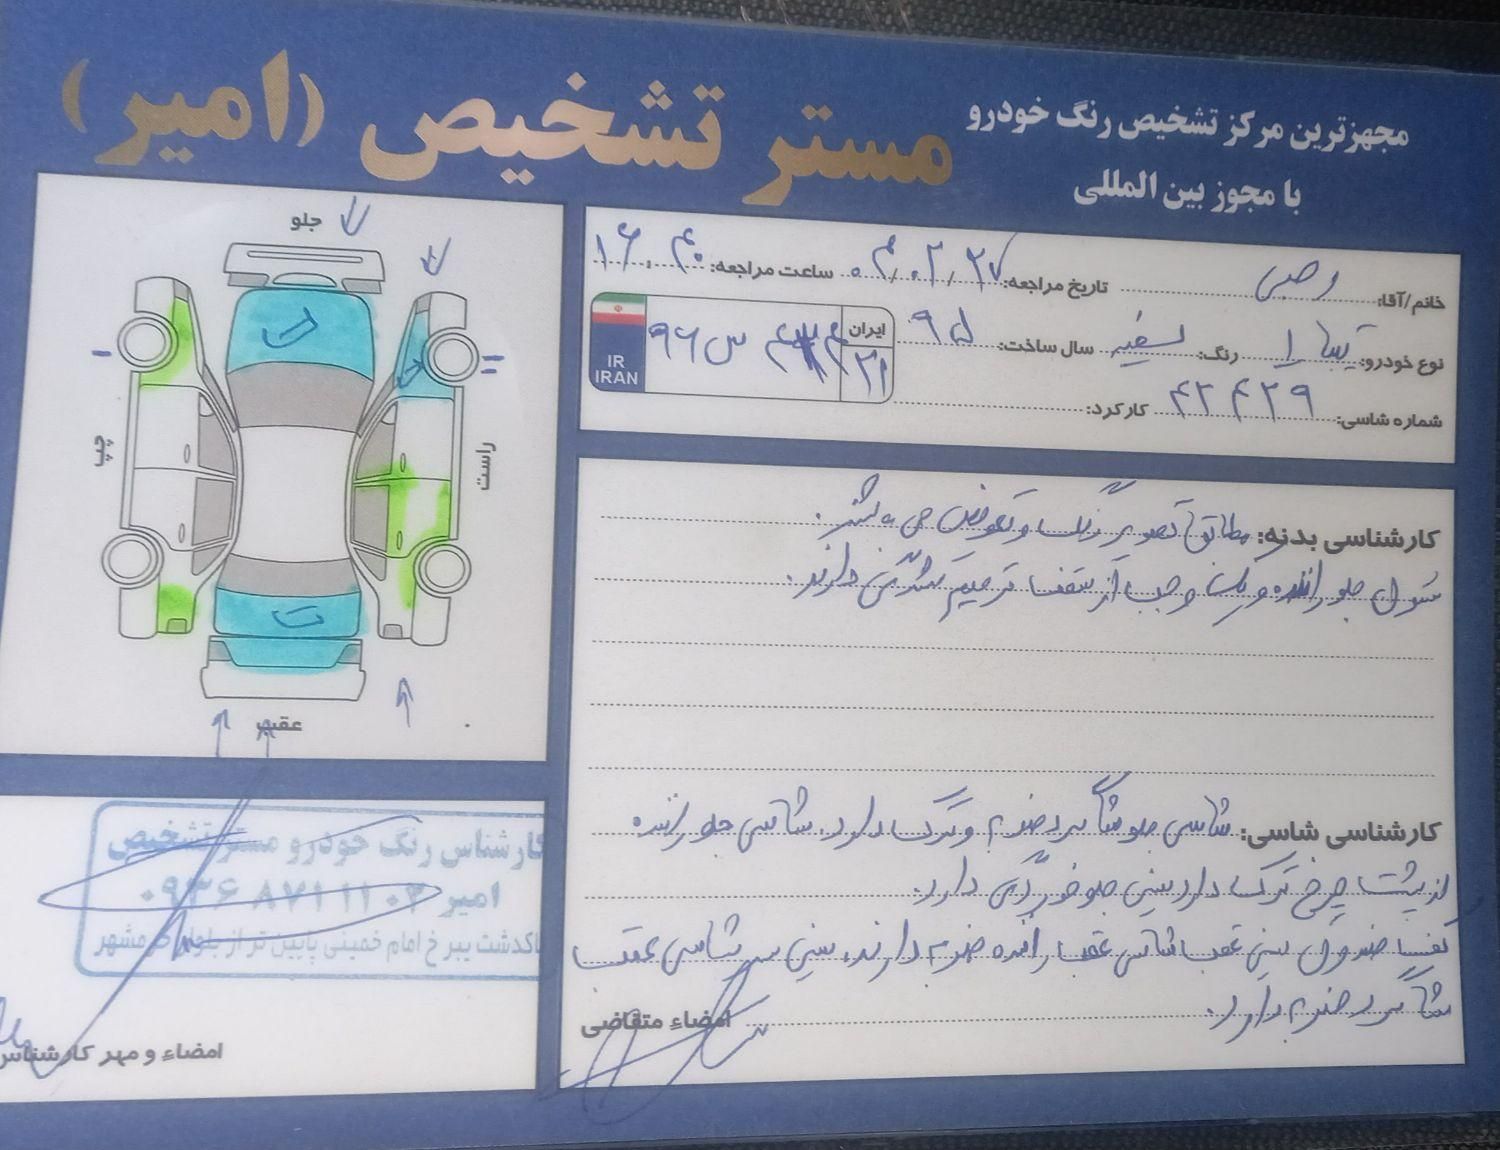 مجهزترین مرکز تشخیص رنگ خودرو
با مجوز بین المللی
مستر تشخیص (امیر)
خانم/آقا: رجبی تاریخ مراجعه: ۰۴,۰۲,۲۷ ساعت مراجعه: ۱۶,۴۰
نوع خودرو: تیبا ۲ رنگ: سفید سال ساخت: ۹۵
ایران
IR
IRAN
شماره شاسی: ۴۲۴۲۹ کارکرد:
جلو
چپ
راست
عقب
کارشناسی بدنه: مطابق تصویر رنگ و تعویض می باشد.
ستون جلو راننده و یک وجب از سقف ترمیم شدگی دارند.
کارشناسی شاسی: شاسی جلو شاگرد ضربه و ترک دارد. شاسی جلو راننده
از پشت چرخ ترک دارد سینی جلو خوردگی دارد.
کف صندوق سینی عقب شاسی عقب راننده ضربه دارند. سینی سر شاسی عقب
شاگرد ضربه دارد.
امضاء متقاضی
کارشناس رنگ خودرو مستر تشخیص
امیر ۰۹۳۶ ۸۷۱ ۱۱ ۰۲
پاکدشت بیرخ امام خمینی پایین تر از بلوار
امضاء و مهر کارشناس